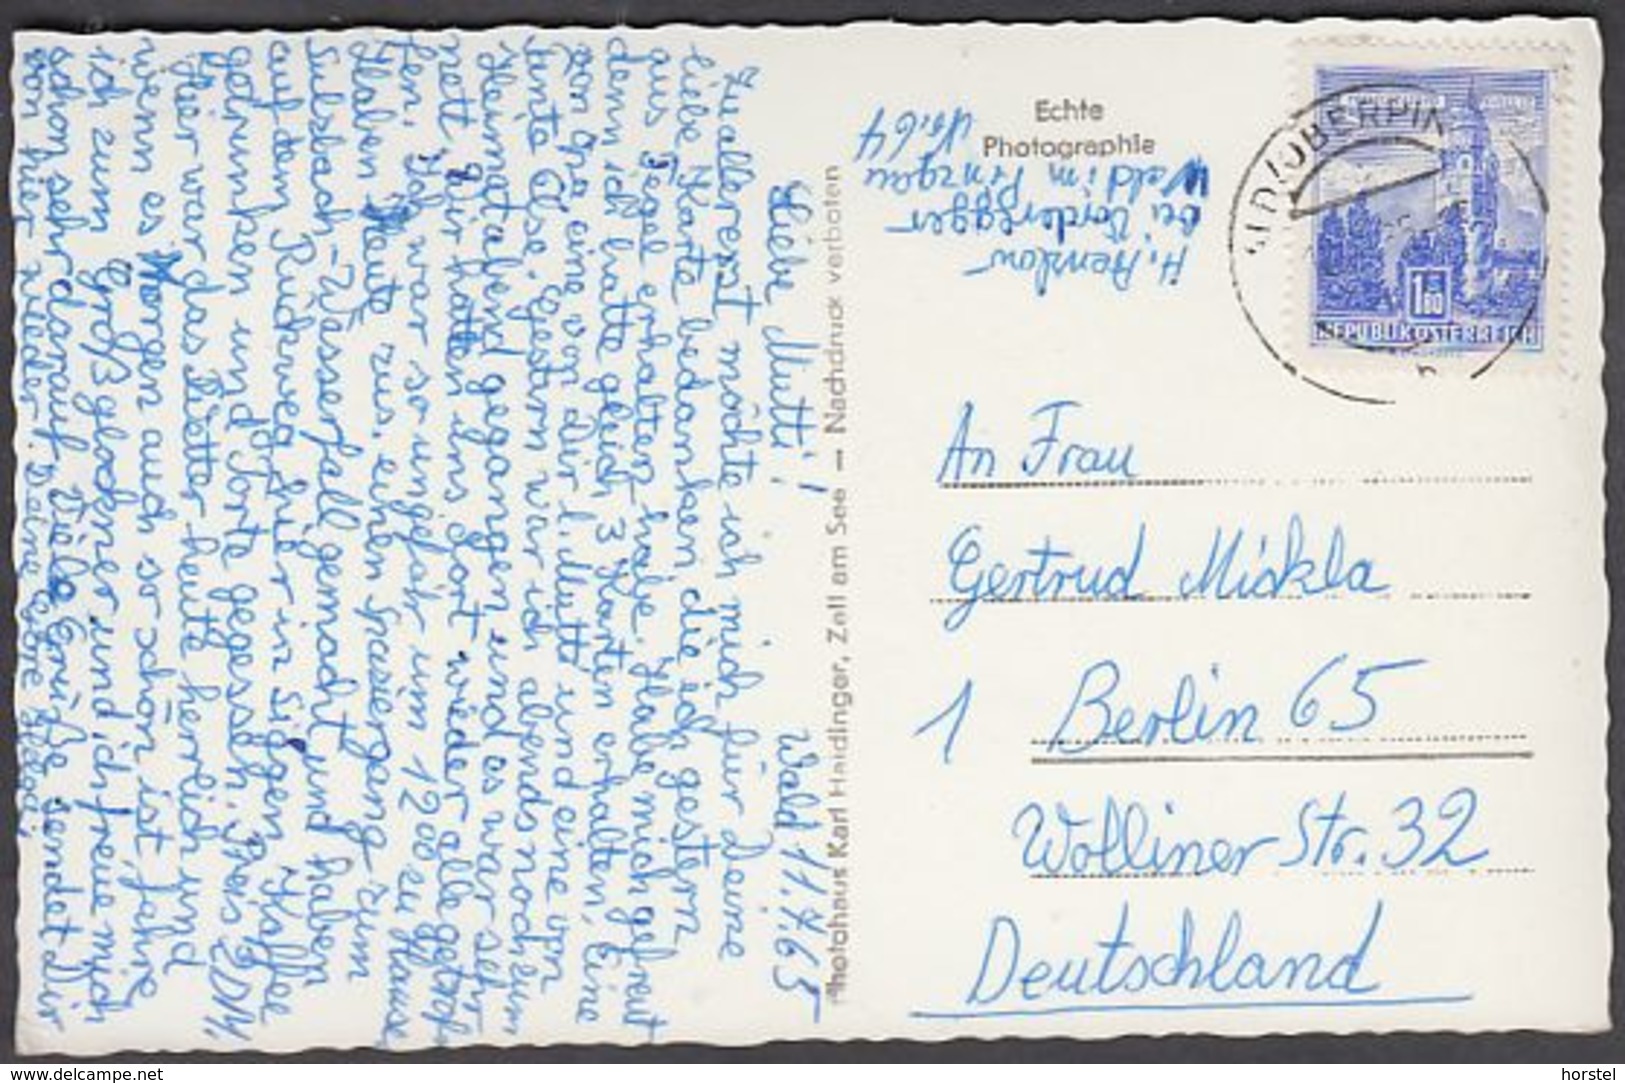 Wald 11.7.65
Liebe Mutti!
Zuallererst möchte ich mich für Deine
liebe Karte bedanken, die ich gestern
aus Tegel erhalten habe. Habe mich gefreut
denn ich hatte gleich 3 Karten erhalten, eine
von Opa eine von Dir l. Mutti und eine von
Tante Else. Gestern war ich abends noch zum
Heimatabend gegangen und es war sehr
nett. Wir hatten uns dort wieder alle getrof-
fen. Ich war so ungefähr um 12⁰⁰ zu Hause
Haben heute aus, einen spaziergang zum
Sulzbach-Wasserfall gemacht und haben
auf dem Rückweg hier in Kaffee
getrunken und Torte gegessen. Preis 2 DM.
Hier war das Wetter heute herrlich und
wenn es Morgen auch so schön ist, fahre
ich zum Großglockner und ich freue mich
schon sehr darauf. Viele Grüße sendet Dir
von hier wieder. Deine
Photohaus Karl Haidinger, Zell am See — Nachdruck verboten
Echte
Photographie
H.
bei Vorderegger
Wald im Pinzgau
Nr. 64
1.80
REPUBLIK ÖSTERREICH
An Frau
Gertrud Mickla
1 Berlin 65
Wolliner Str. 32
Deutschland
www.delcampe.net
horstel